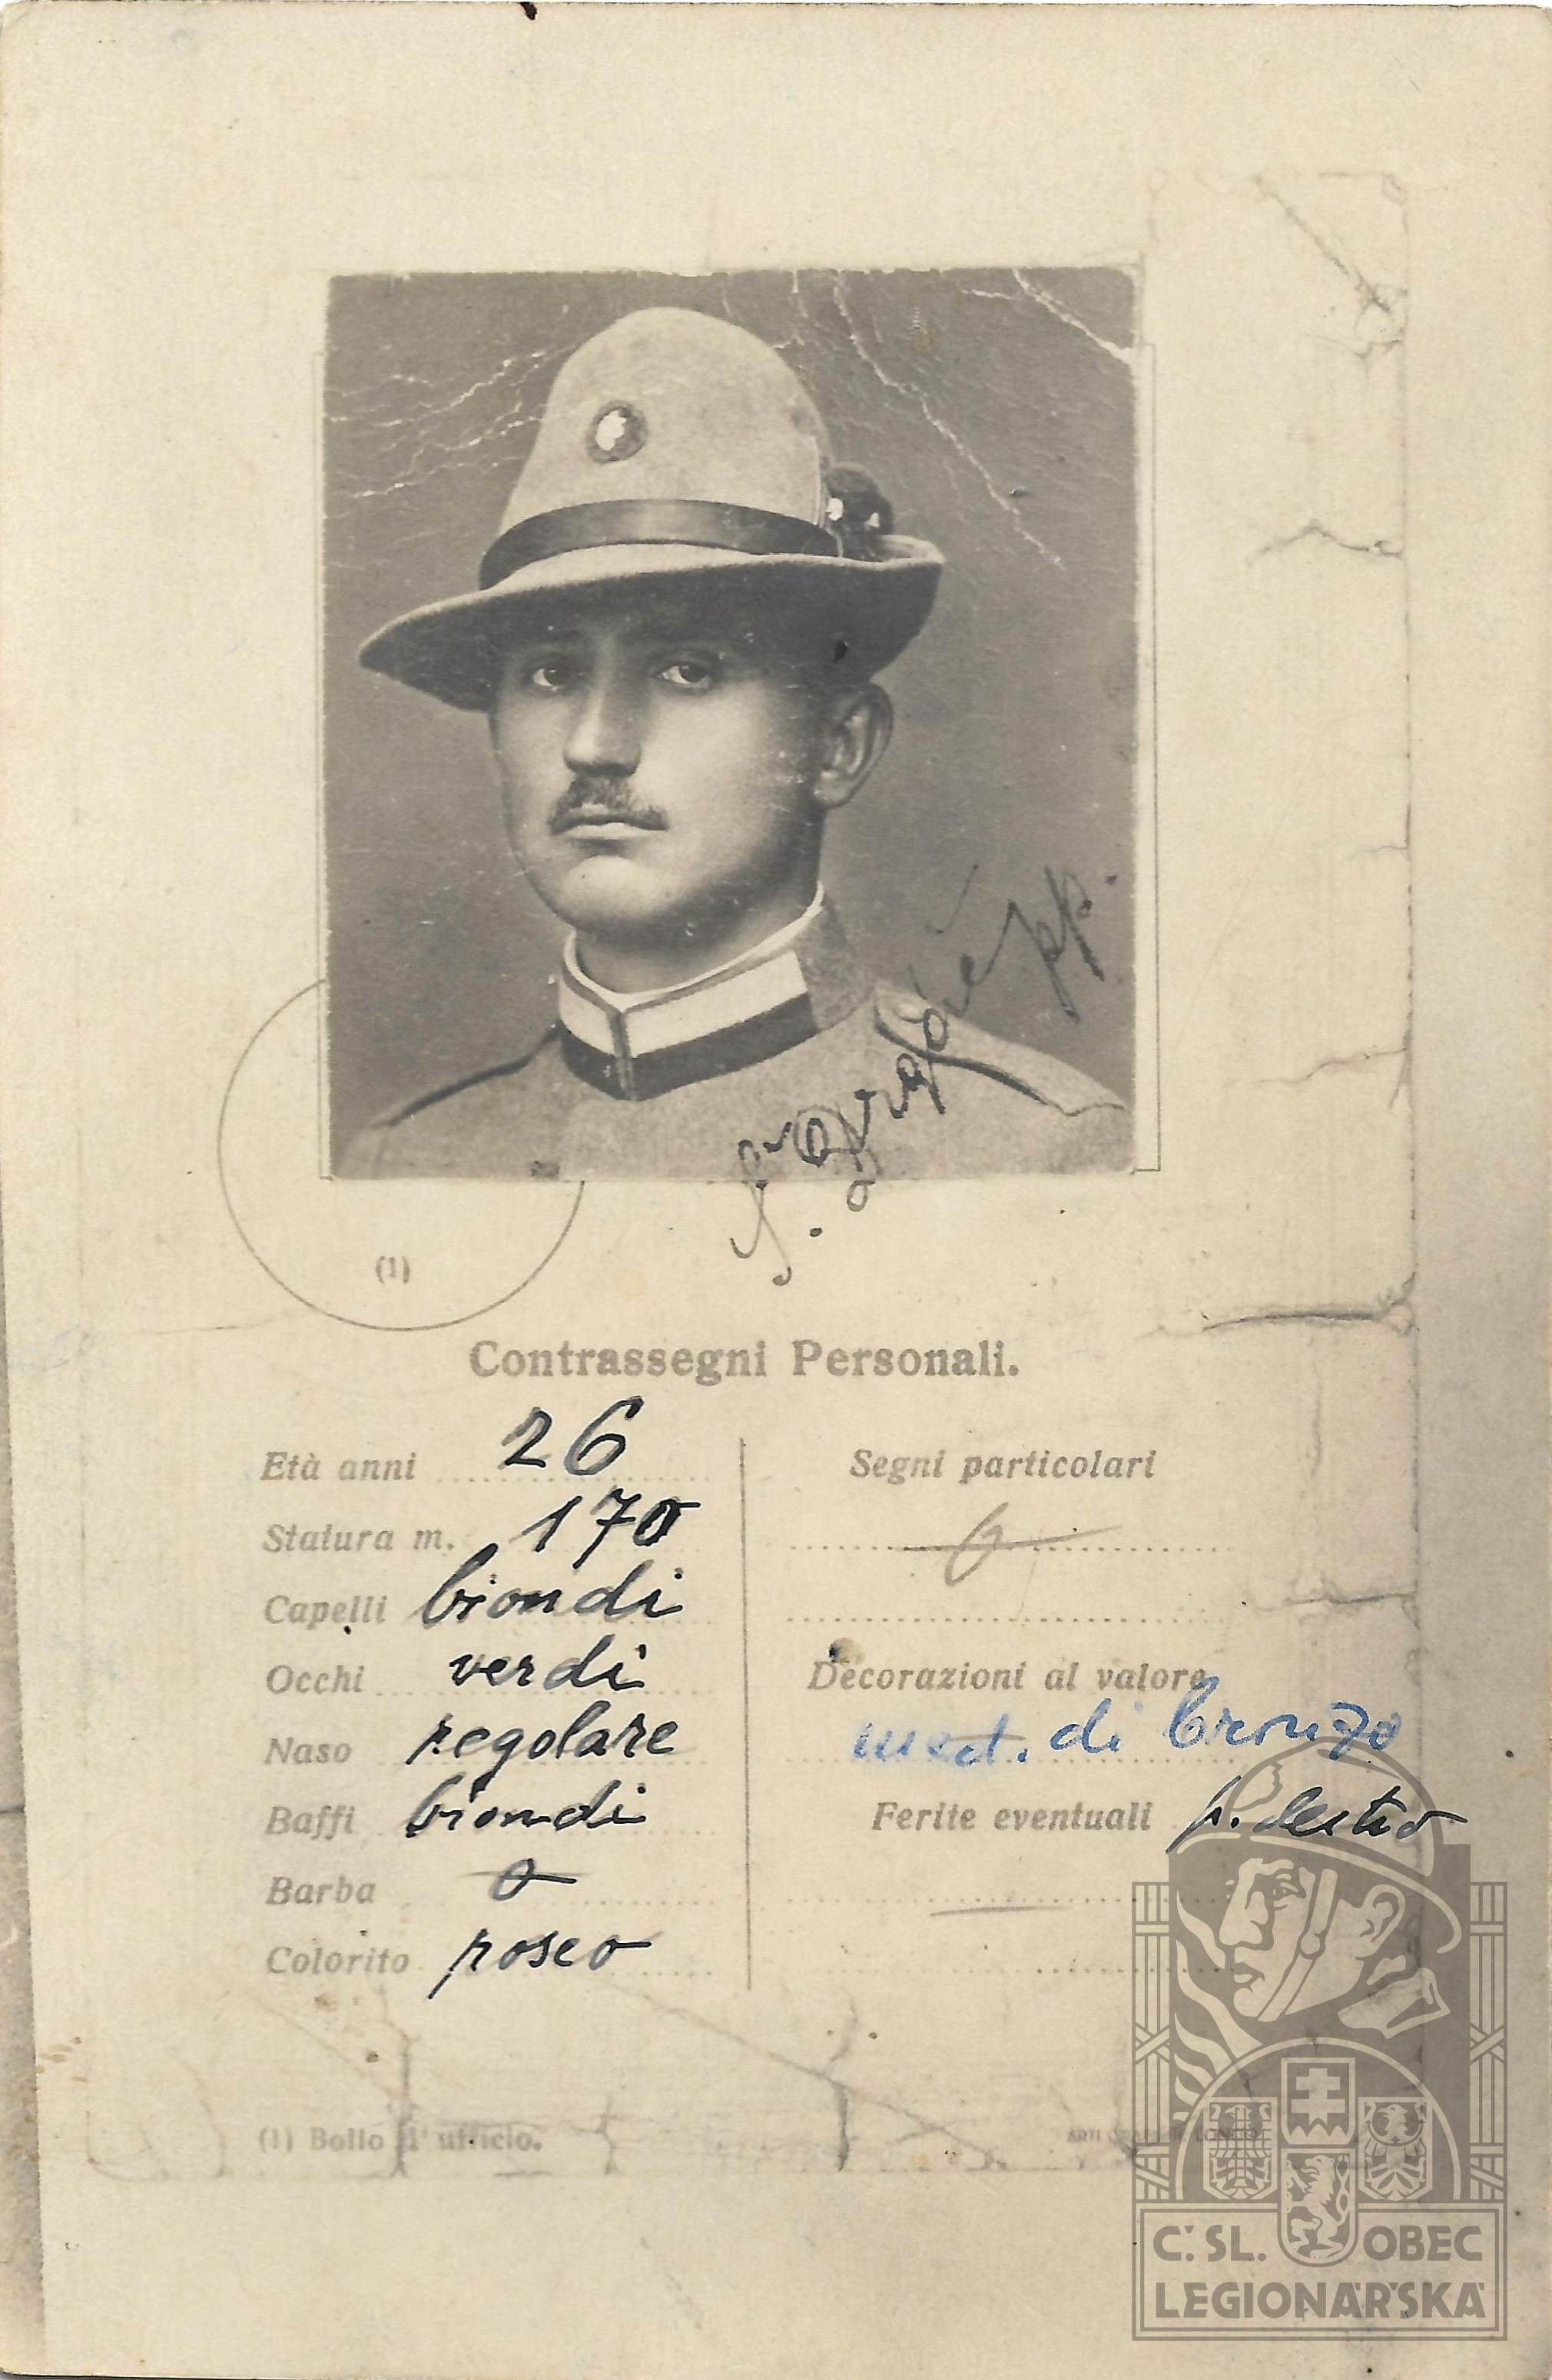 (1)
Contrassegni Personali.
Età anni 26
Statura m. 170
Capelli biondi
Occhi verdi
Naso regolare
Baffi biondi
Barba 0
Colorito roseo
Segni particolari
0
Decorazioni al valore
med. di bronzo
Ferite eventuali p. destro
(1) Bollo d'ufficio.
Č. SL. OBEC
LEGIONÁŘSKÁ